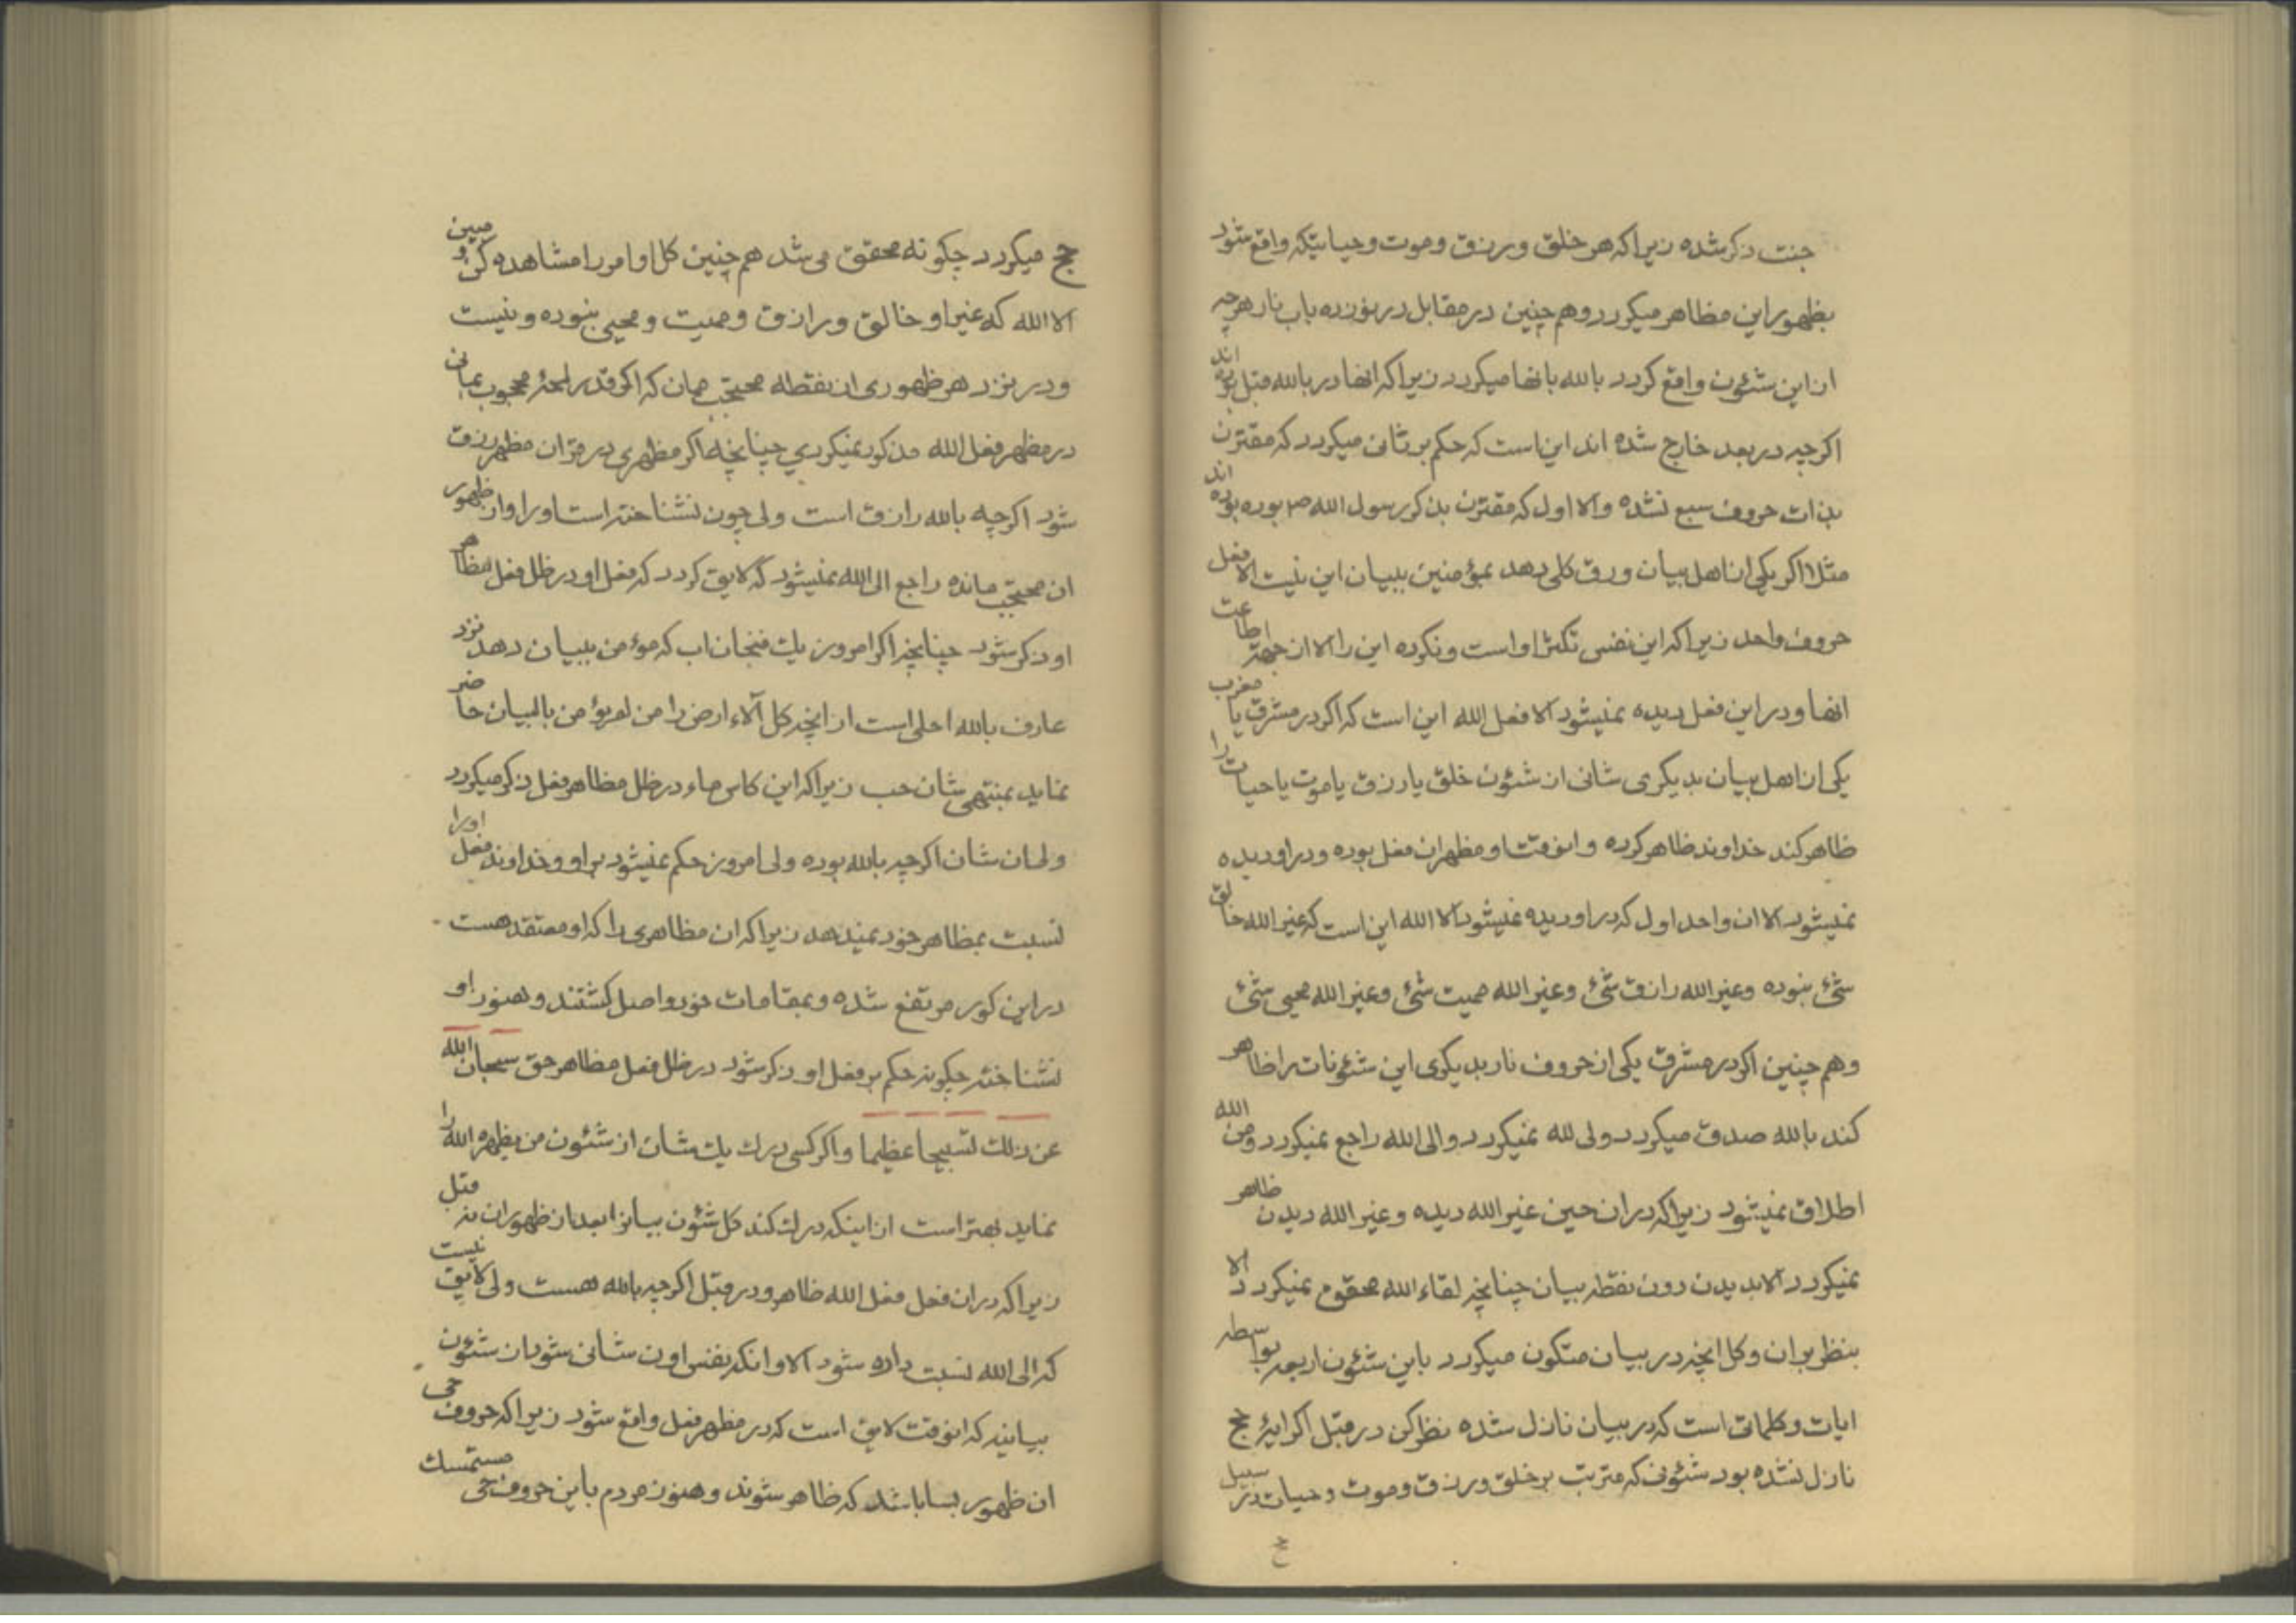 جنت ذکر شده زیرا که هر خلق و رزق و موت و حیاتیکه واقع شود
بظهور این مظاهر میگردد و هم چنین در مقابل در نوزده باب نار هر چه
از این شئون واقع گردد بالله بانها میگردد زیرا که انها در بالله قبل بوده اند
اگر چه در بعد خارج شده اند این است که حکم بر ثانی میگردد که مقترن
بذات حروف سبع نشده والا اول که مقترن بذکر رسول الله ص بوده بوده اند
مثلا اگر یکی از اهل بیان ورق کلی دهد بمؤمنین ببیان این نیست الا فعل
حروف واحد زیرا که این نفس تکثر او است و نکرده این را الا از جهة اطاعت
انها و در این فعل دیده نمیشود الا فعل الله این است که اگر در مشرق یا مغرب
یکی از اهل بیان بدیگری شانی از شئون خلق یا رزق یا موت یا حیات را
ظاهر کند خداوند ظاهر کرده و انوقت او مظهر ان فعل بوده و در او دیده
نمیشود الا ان واحد اول که در او دیده نمیشود الا الله این است که غیر الله خالق
شئ نبوده و غیر الله رازق شئ و غیر الله ممیت شئ و غیر الله محیی شئ
و هم چنین اگر در مشرق یکی از حروف نار بدیگری این شئونات را ظاهر
کند بالله صدق میگردد ولی لله نمیگردد و الی الله راجع نمیگردد و من الله
اطلاق نمیشود زیرا که در ان حین غیر الله دیده و غیر الله دیدن ظاهر
نمیگردد الا بدیدن دون نقطه بیان چنانچه لقاء الله محقق نمیگردد الا
بنظر بر ان و کل انچه در بیان متکون میگردد باین شئون اربعه بواسطه
ایات و کلماتی است که در بیان نازل شده نظر کن در قبل اگر ایهٔ حج
نازل نشده بود شئونی که مترتب بر خلق و رزق و موت و حیات در سبیل
حج میگردد چگونه محقق می شد هم چنین کل اوامر را مشاهده کن و مبین
الا الله که غیر او خالق و رازق و ممیت و محیی نبوده و نیست
و در نزد هر ظهوری از نقطه محتجب ممان که اگر قدر لمحهٔ محجوب بمانی
در مظهر فعل الله مذکور نمیگردی چنانچه اگر مظهری در قران مظهر رزق
شود اگر چه بالله رازق است ولی چون نشناخته است او را و از ظهور
ان محتجب مانده راجع الی الله نمیشود که لایق گردد که فعل او در ظل فعل مظاهر
او ذکر شود چنانچه اگر امروز یک فنجان اب که مؤمن ببیان دهد نزد
عارف بالله احلی است از انچه کل آلاء ارض را من لم یؤمن بالبیان حاضر
نماید بمنتهی شان حب زیرا که این کاس ماء در ظل مظاهر فعل ذکر میگردد
و ان شان اگر چه بالله بوده ولی امروز حکم نمیشود بر او و خداوند فعل او را
نسبت بمظاهر خود نمیدهد زیرا که ان مظاهری را که او معتقد هست
در این کور مرتفع شده و بمقامات خود واصل گشتند و هنوز او
نشناخته چگونه حکم بر فعل او ذکر شود در ظل فعل مظاهر حق سبحان الله
عن ذلک تسبیحا عظیما و اگر کسی درک یک شان از شئون من یظهره الله را
نماید بهتر است از اینکه درک کند کل شئون بیانرا بعد از ظهور ان نه قبل
زیرا که در ان فعل فعل الله ظاهر و در قبل اگر چه بالله هست ولی لایق نیست
که الی الله نسبت داده شود الا و انکه بنفس اون شانی شود از شئون
بیانیه که انوقت لایق است که در مظهر فعل واقع شود زیرا که حروف حی
ان ظهور بسا باشد که ظاهر شوند و هنوز مردم باین حروف حی مستمسک